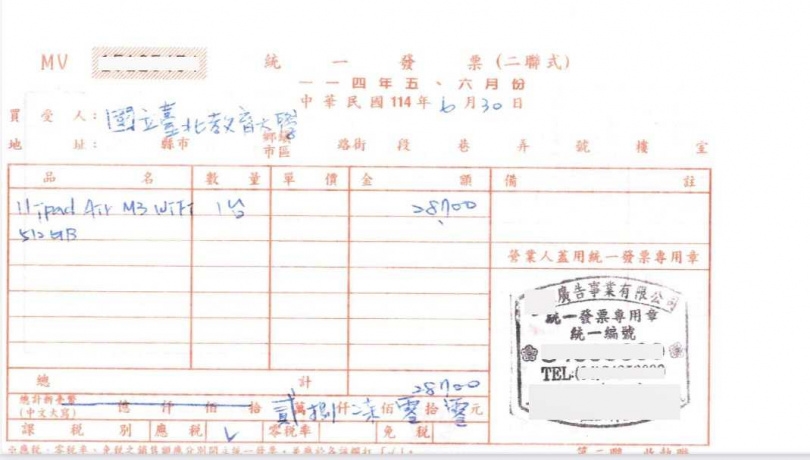 MV
統一發票(二聯式)
一一四年五、六月份
中華民國114年6月30日
買受人：國立臺北教育大學
地址： 縣市 鄉鎮市區 路街 段 巷 弄 號 樓 室
品名 數量 單價 金額 備註
11"ipad Air M3 WiFi 1台 28700
512GB
營業人蓋用統一發票專用章
廣告事業有限公司
統一發票專用章
統一編號
TEL:(
總計 28700
總計新臺幣
(中文大寫) 億 仟 佰 拾 貳萬捌仟柒佰零拾零元
課稅別 應稅 ✓ 零稅率 免稅